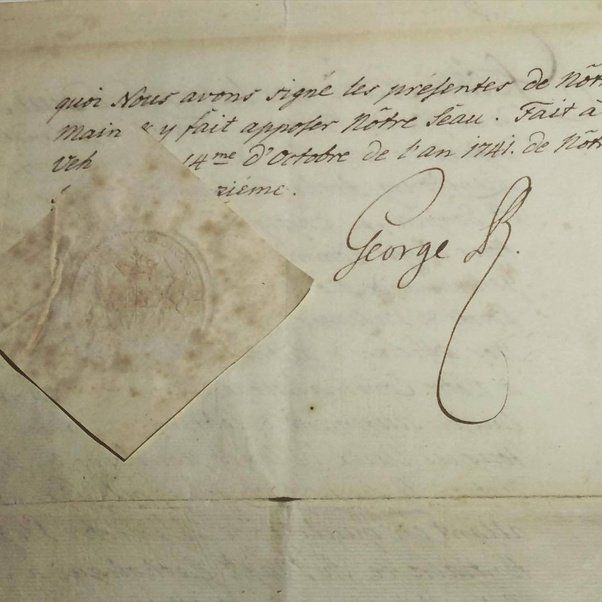 quoi Nous avons signé les présentes de Nôt
Main & y fait apposer Nôtre Séau. Fait à
4me d'Octobre de l'an 1741. de Nôt
zième.
George R.